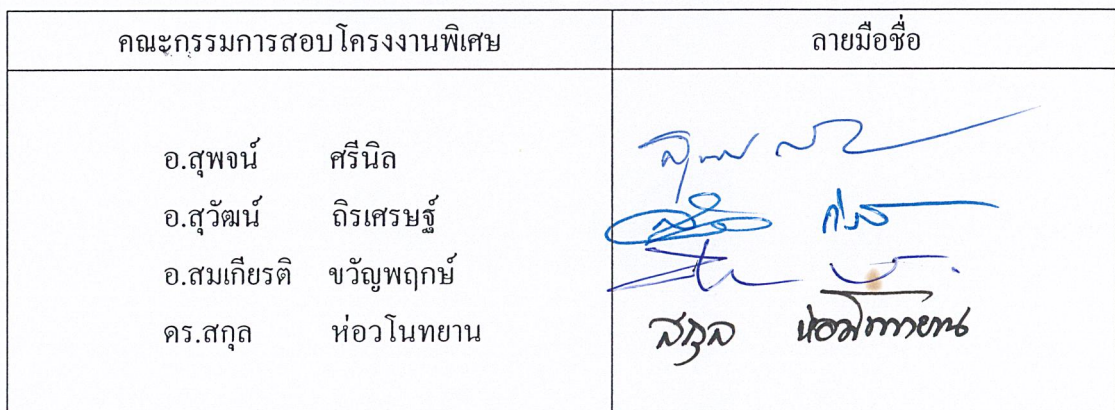 คณะกรรมการสอบโครงงานพิเศษ ลายมือชื่อ
อ.สุพจน์ ศรีนิล
อ.สุวัฒน์ ถิรเศรษฐ์
อ.สมเกียรติ ขวัญพฤกษ์
ดร.สกุล ห่อวโนทยาน สกุล ห่อวโนทยาน